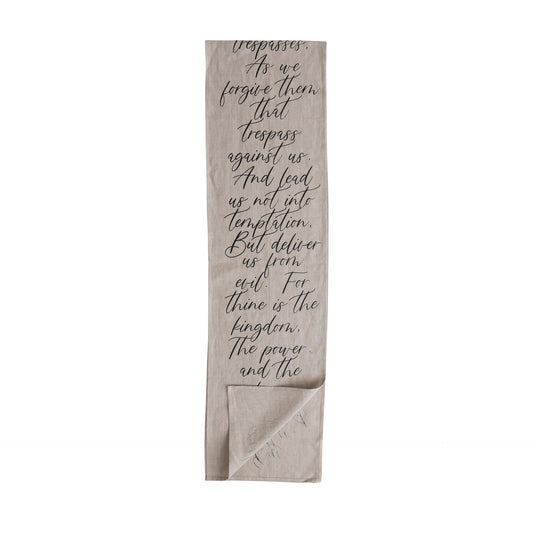 trespasses,
As we
forgive them
that
trespass
against us.
And lead
us not into
temptation,
But deliver
us from
evil. For
thine is the
kingdom,
The power
and the